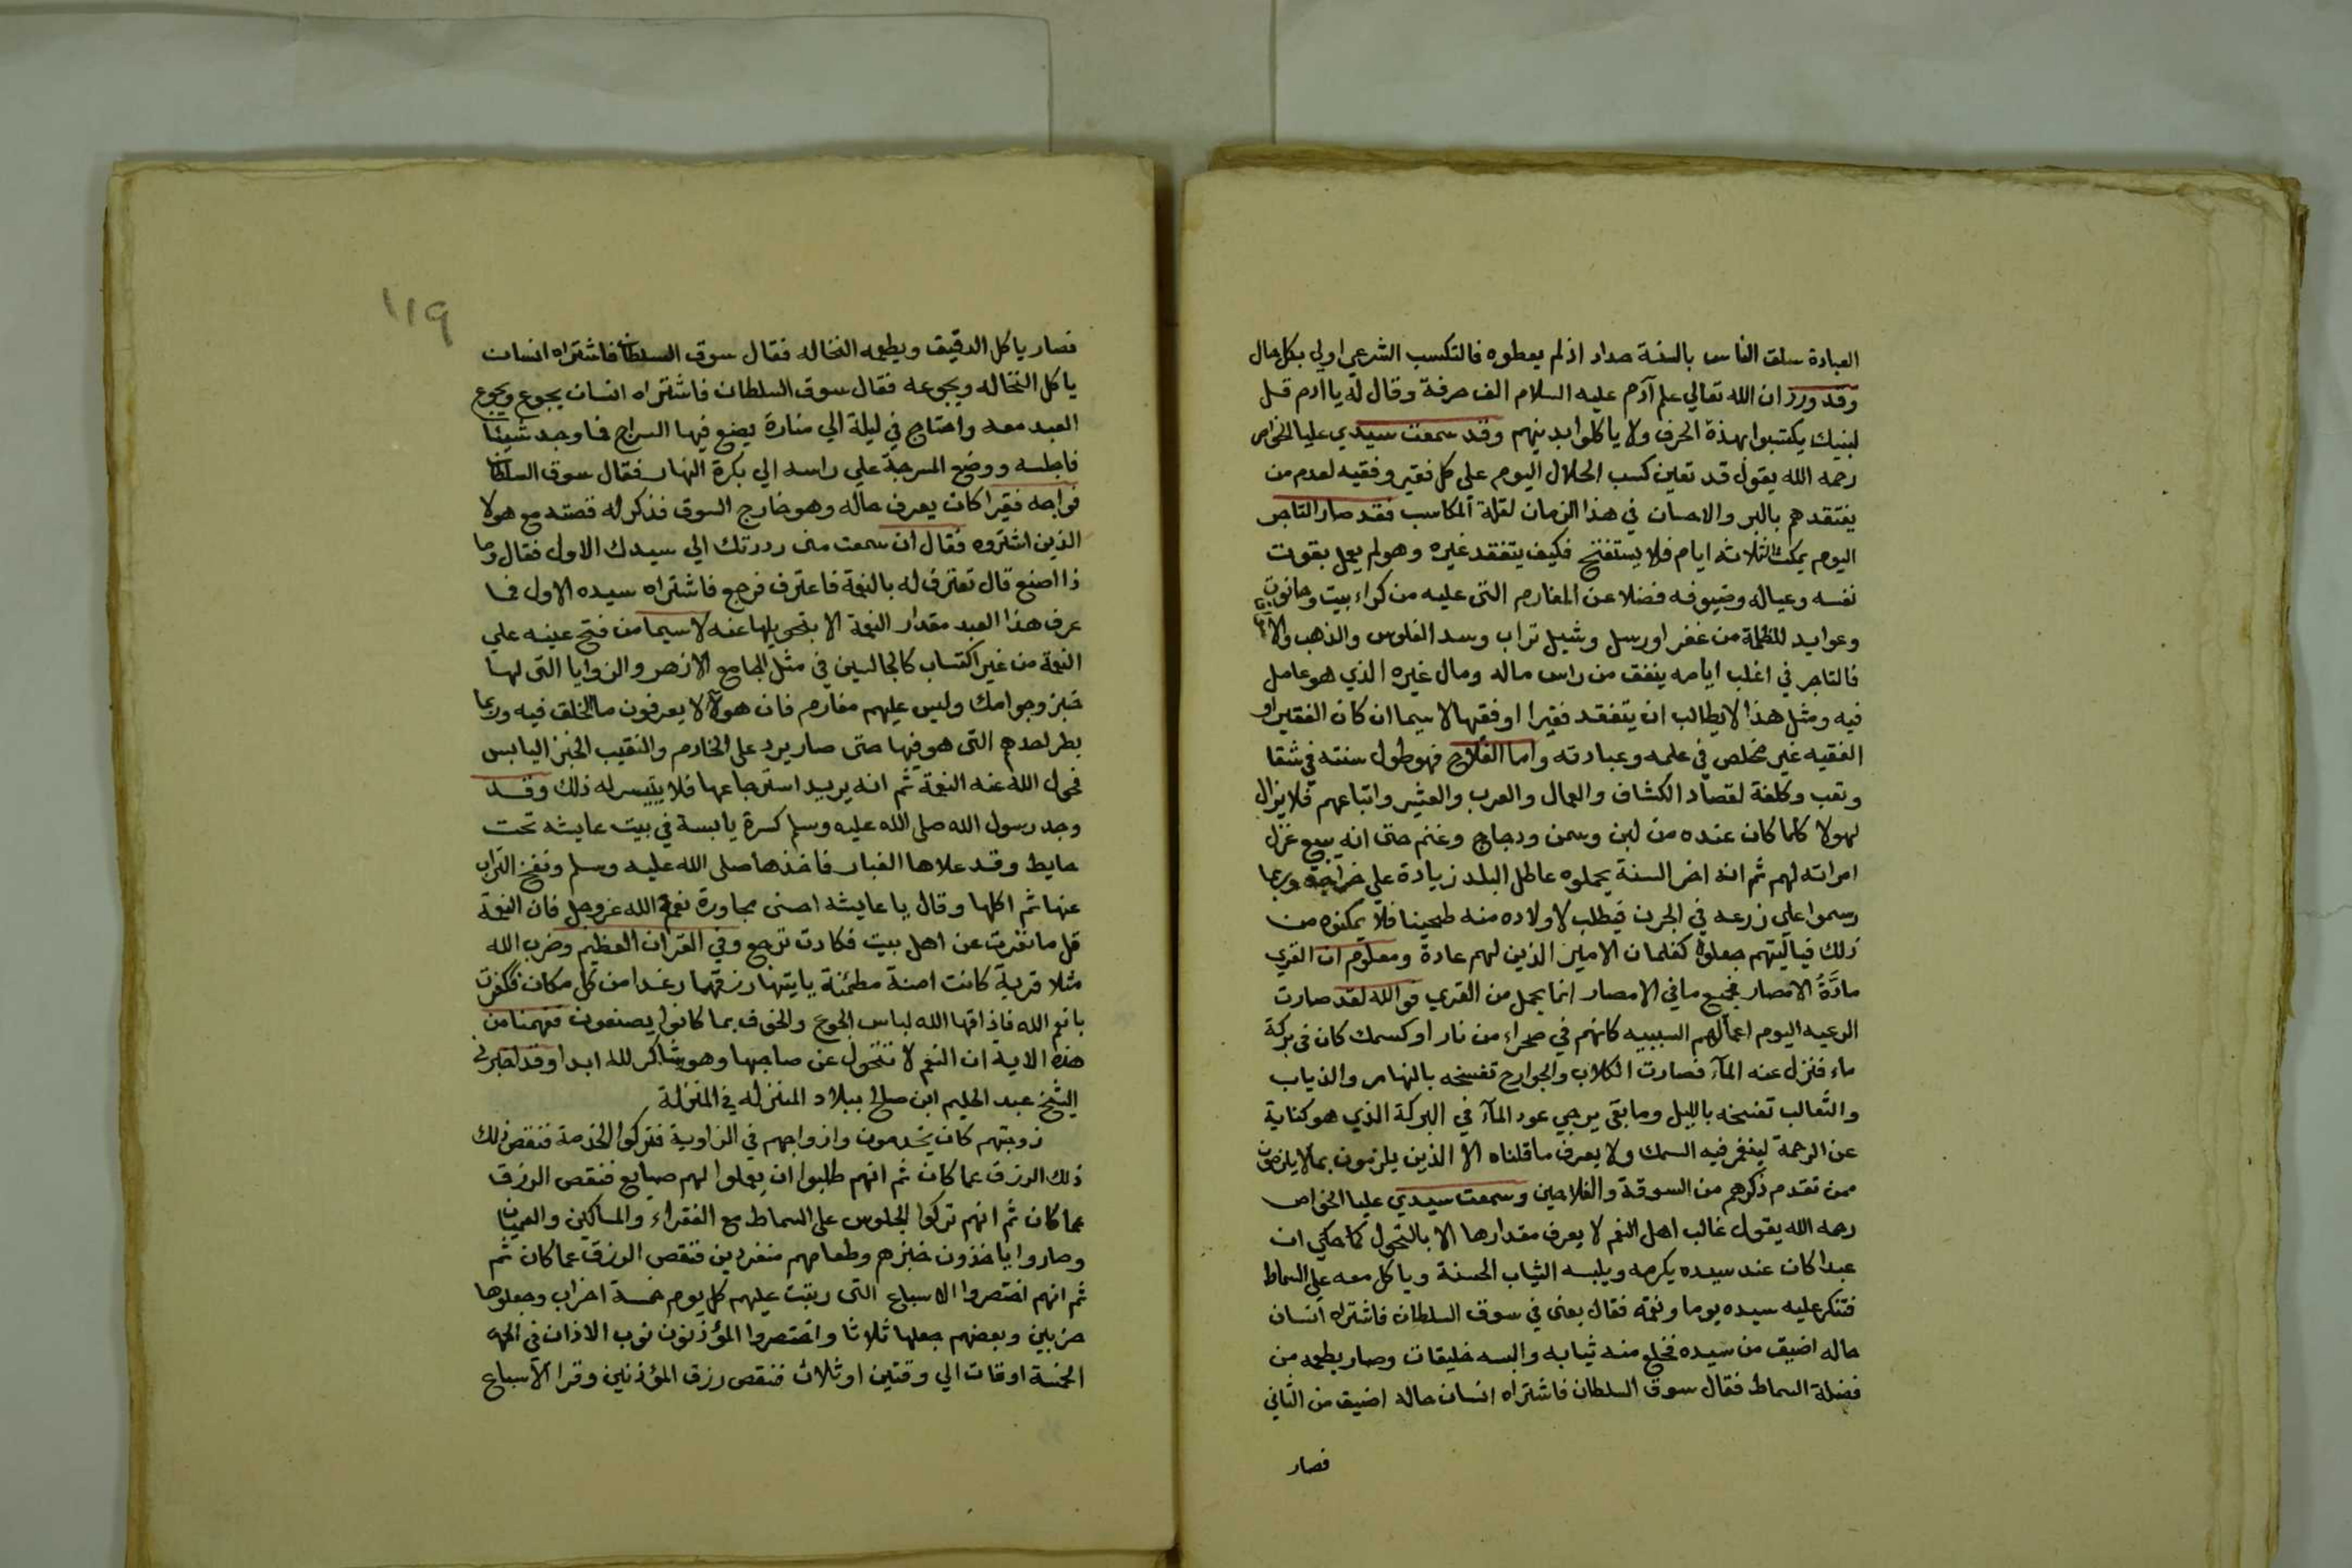 العبادة سلق الناس بالسنة حداد اذ لم يعطوه فالتكسب الشرعي اولي بكل حال
وقد ورد ان الله تعالي علم آدم عليه السلام الف حرفة وقال له يا ادم قل
لبنيك يكتسبوا بهذه الحرف ولا ياكلوا بدينهم وقد سمعت سيدي عليا الخواص
رحمه الله يقول قد تعين كسب الحلال اليوم علي كل فقير وفقيه لعدم من
يفتقدهم بالبر والاحسان في هذا الزمان لقلة المكاسب فقد صار التاجر
اليوم يمكث الثلاثه ايام فلا يستفتح فكيف يتفقد غيره وهو لم يعمل بقوت
نفسه وعياله وضيوفه فضلا عن المغارم التي عليه من كراء بيت وحانوت
وعوايد للظلمة من غفر اورسل وشيل تراب وسد الفلوس والذهب
فالتاجر في اغلب ايامه ينفق من راس ماله ومال غيره الذي هو عامل
فيه ومثل هذا لا يطالب ان يتفقد فقيرا او فقيها لا سيما ان كان الفقير او
الفقيه غير مخلص في علمه وعبادته واما الفلاح فهو طول سنته في شقا
وتعب وكلفة لقصاد الكشاف والعمال والعرب والعشير واتباعهم فلا يزال
لهولا كلما كان عنده من لبن وسمن ودجاج وغنم حتي انه يبيع غزل
امراته لهم ثم انه اخر السنة يحملوه عاطل البلد زيادة علي خراجه وربما
رسموا علي زرعه في الجرن فيطلب لاولاده منه طحينا فلا يمكنوه من
ذلك فياليتهم جعلوه كغلمان الامير الذين لهم عادة ومعلوم ان القري
مادَّةُ الامصار فجميع ما في الامصار انما يحمل من القري فوالله لقد صارت
الرعيه اليوم اعمالهم السيييه كانهم في صحراء من نار او كسمك كان في بركة
ماء فنزل عنه المآء فصارت الكلاب والجوارح تفسخه بالنهار والذياب
والثعالب تفسخه بالليل وما بقي يرجي عود المآء في البركة الذي هو كناية
عن الرحمة لينغمر فيه السمك ولا يعرف ما قلناه الا الذين يلزمون بما لا يلزمون
ممن تقدم ذكرهم من السوقة والفلاحين وسمعت سيدي عليا الخواص
رحمه الله يقول غالب اهل النعم لا يعرف مقدارها الا بالتحول كما حكي ان
عبدا كان عند سيده يكرمه ويلبسه الثياب الحسنة وياكل معه علي السماط
فتنكر عليه سيده يوما ونقمه فقال بعني في سوق السلطان فاشتراه انسان
حاله اضيق من سيده فخلع منه ثيابه والبسه خليقات وصار يطعمه من
فضلة السماط فقال سوق السلطان فاشتراه انسان حاله اضيق من الثاني
فصار
١١٩
فصار ياكل الدقيق ويطعمه النخاله فقال سوق السلطان فاشتراه انسان
ياكل النخاله ويجوعه فقال سوق السلطان فاشتراه انسان يجوع ويجوع
العبد معه واحتاج في ليلة الي منارة يضع فيها السراج فما وجد شيئا
فاجلسه ووضع المسرجة علي راسه الي بكرة النهار فقال سوق السلطان
فواجه فقيرا كان يعرف حاله وهو خارج السوق فذكر له قصته مع هولا
الذين اشتروه فقال ان سمعت مني رددتك الي سيدك الاول فقال وما
ذا اصنع قال تعترف له بالنعمة فاعترف فرجع فاشتراه سيده الاول فما
عرف هذا العبد مقدار النعمة الا بتحويلها عنه لا سيما من فتح عينه علي
النعمة من غير اكتساب كالجالسين في مثل الجامع الازهر والزوايا التي لها
خبز وجوامك وليس عليهم مغارم فان هولاء لا يعرفون ما الخلق فيه وربما
بطر احدهم التي هو فيها حتي صار يرد علي الخادم والنقيب الخبز اليابس
فحول الله عنه النعمة ثم انه يريد استرجاعها فلا يتيسر له ذلك وقد
وجد رسول الله صلي الله عليه وسلم كسرة يابسة في بيت عايشه تحت
حايط وقد علاها الغبار فاخذها صلي الله عليه وسلم ونفخ التراب
عنها ثم اكلها وقال يا عايشه احسني مجاورة نعمة الله عز وجل فان النعمة
قل ما نفرت عن اهل بيت فكادت ترجع وفي القران العظيم وضرب الله
مثلا قرية كانت امنة مطمئنة ياتيها رزقها رغدا من كل مكان فكفرت
بانعم الله فاذاقها الله لباس الجوع والخوف بما كانوا يصنعون ففهمنا من
هذه الاية ان النعم لا تتحول عن صاحبها وهو شاكر لله ابدا وقد اخبرني
الشيخ عبد الحليم ابن صالح ببلاد المنزله في المنزلة
زوجتهم كان يخدمون وازواجهم في الزاوية فتركوا الخدمة فنقص ذلك
ذلك الرزق عما كان ثم انهم طلبوا ان يعملوا لهم صنايع فنقص الرزق
عما كان ثم انهم تركوا الجلوس علي السماط مع الفقراء والمساكين والعميان
وصاروا ياخذون خبزهم وطعامهم منفردين فنقص الرزق عما كان ثم
ثم انهم اختصروا الاسباع التي رتبت عليهم كل يوم خمسة احزاب وجعلوها
حزبين وبعضهم جعلها ثلاثا واختصروا المؤذنون نوب الاذان في
الخمسة اوقات الي وقتين او ثلاث فنقص رزق المؤذنين وقرا الاسباع